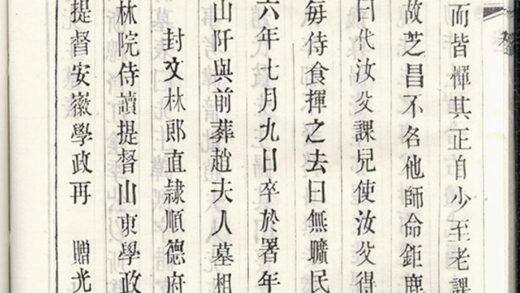 而皆憚其正自少至老課
故芝昌不名他師命鉅鹿
曰代汝父課兒使汝父得
每侍食揮之去曰無曠民
六年七月九日卒於署年
山阡與前葬趙夫人墓相
封文林郎直隸順德府
林院侍讀提督山東學政
提督安徽學政再 贈光